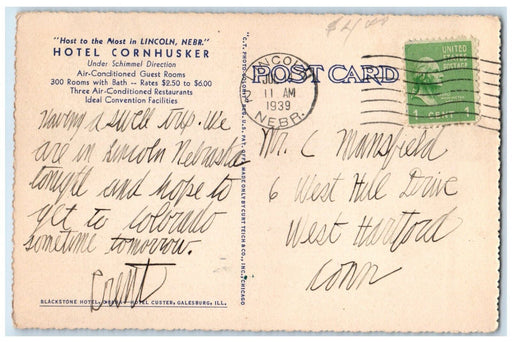 "Host to the Most in LINCOLN, NEBR."
HOTEL CORNHUSKER
Under Schimmel Direction
Air-Conditioned Guest Rooms
300 Rooms with Bath -- Rates $2.50 to $6.00
Three Air-Conditioned Restaurants
Ideal Convention Facilities
Having a swell trip. We
are in Lincoln Nebraska
tonight and hope to
get to Colorado
sometime tomorrow.
BLACKSTONE HOTEL, HOTEL CUSTER, GALESBURG, ILL.
POST CARD
LINCOLN
11 AM
1939
NEBR.
UNITED
STATES
POSTAGE
1 CENT 1
Mr. C Mansfield
6 West Hill Drive
West Hartford
Conn